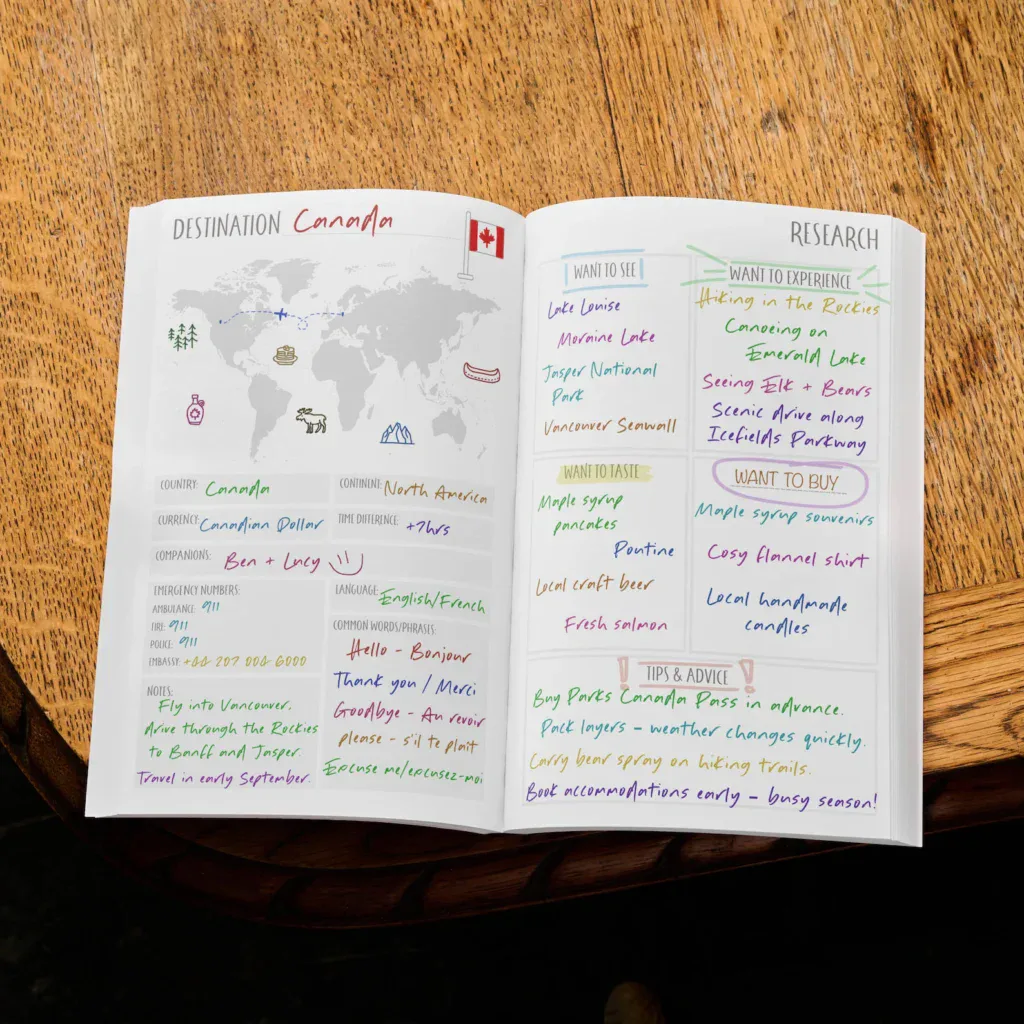 DESTINATION Canada
COUNTRY: Canada
CONTINENT: North America
CURRENCY: Canadian Dollar
TIME DIFFERENCE: +7hrs
COMPANIONS: Ben + Lucy
EMERGENCY NUMBERS:
AMBULANCE: 911
FIRE: 911
POLICE: 911
EMBASSY: +44 207 004 6000
NOTES:
Fly into Vancouver.
drive through the Rockies
to Banff and Jasper.
Travel in early September.
LANGUAGE: English/French
COMMON WORDS/PHRASES:
Hello - Bonjour
Thank you / Merci
Goodbye - Au revoir
please - s'il te plait
Excuse me/excusez-moi
RESEARCH
WANT TO SEE
Lake Louise
Moraine Lake
Jasper National
Park
Vancouver Seawall
WANT TO EXPERIENCE
Hiking in the Rockies
Canoeing on
Emerald Lake
Seeing Elk + Bears
Scenic drive along
Icefields Parkway
WANT TO TASTE
Maple syrup
pancakes
Poutine
Local craft beer
Fresh salmon
WANT TO BUY
Maple syrup souvenirs
Cosy flannel shirt
Local handmade
candles
TIPS & ADVICE
Buy Parks Canada Pass in advance.
Pack layers – weather changes quickly.
Carry bear spray on hiking trails.
Book accommodations early – busy season!